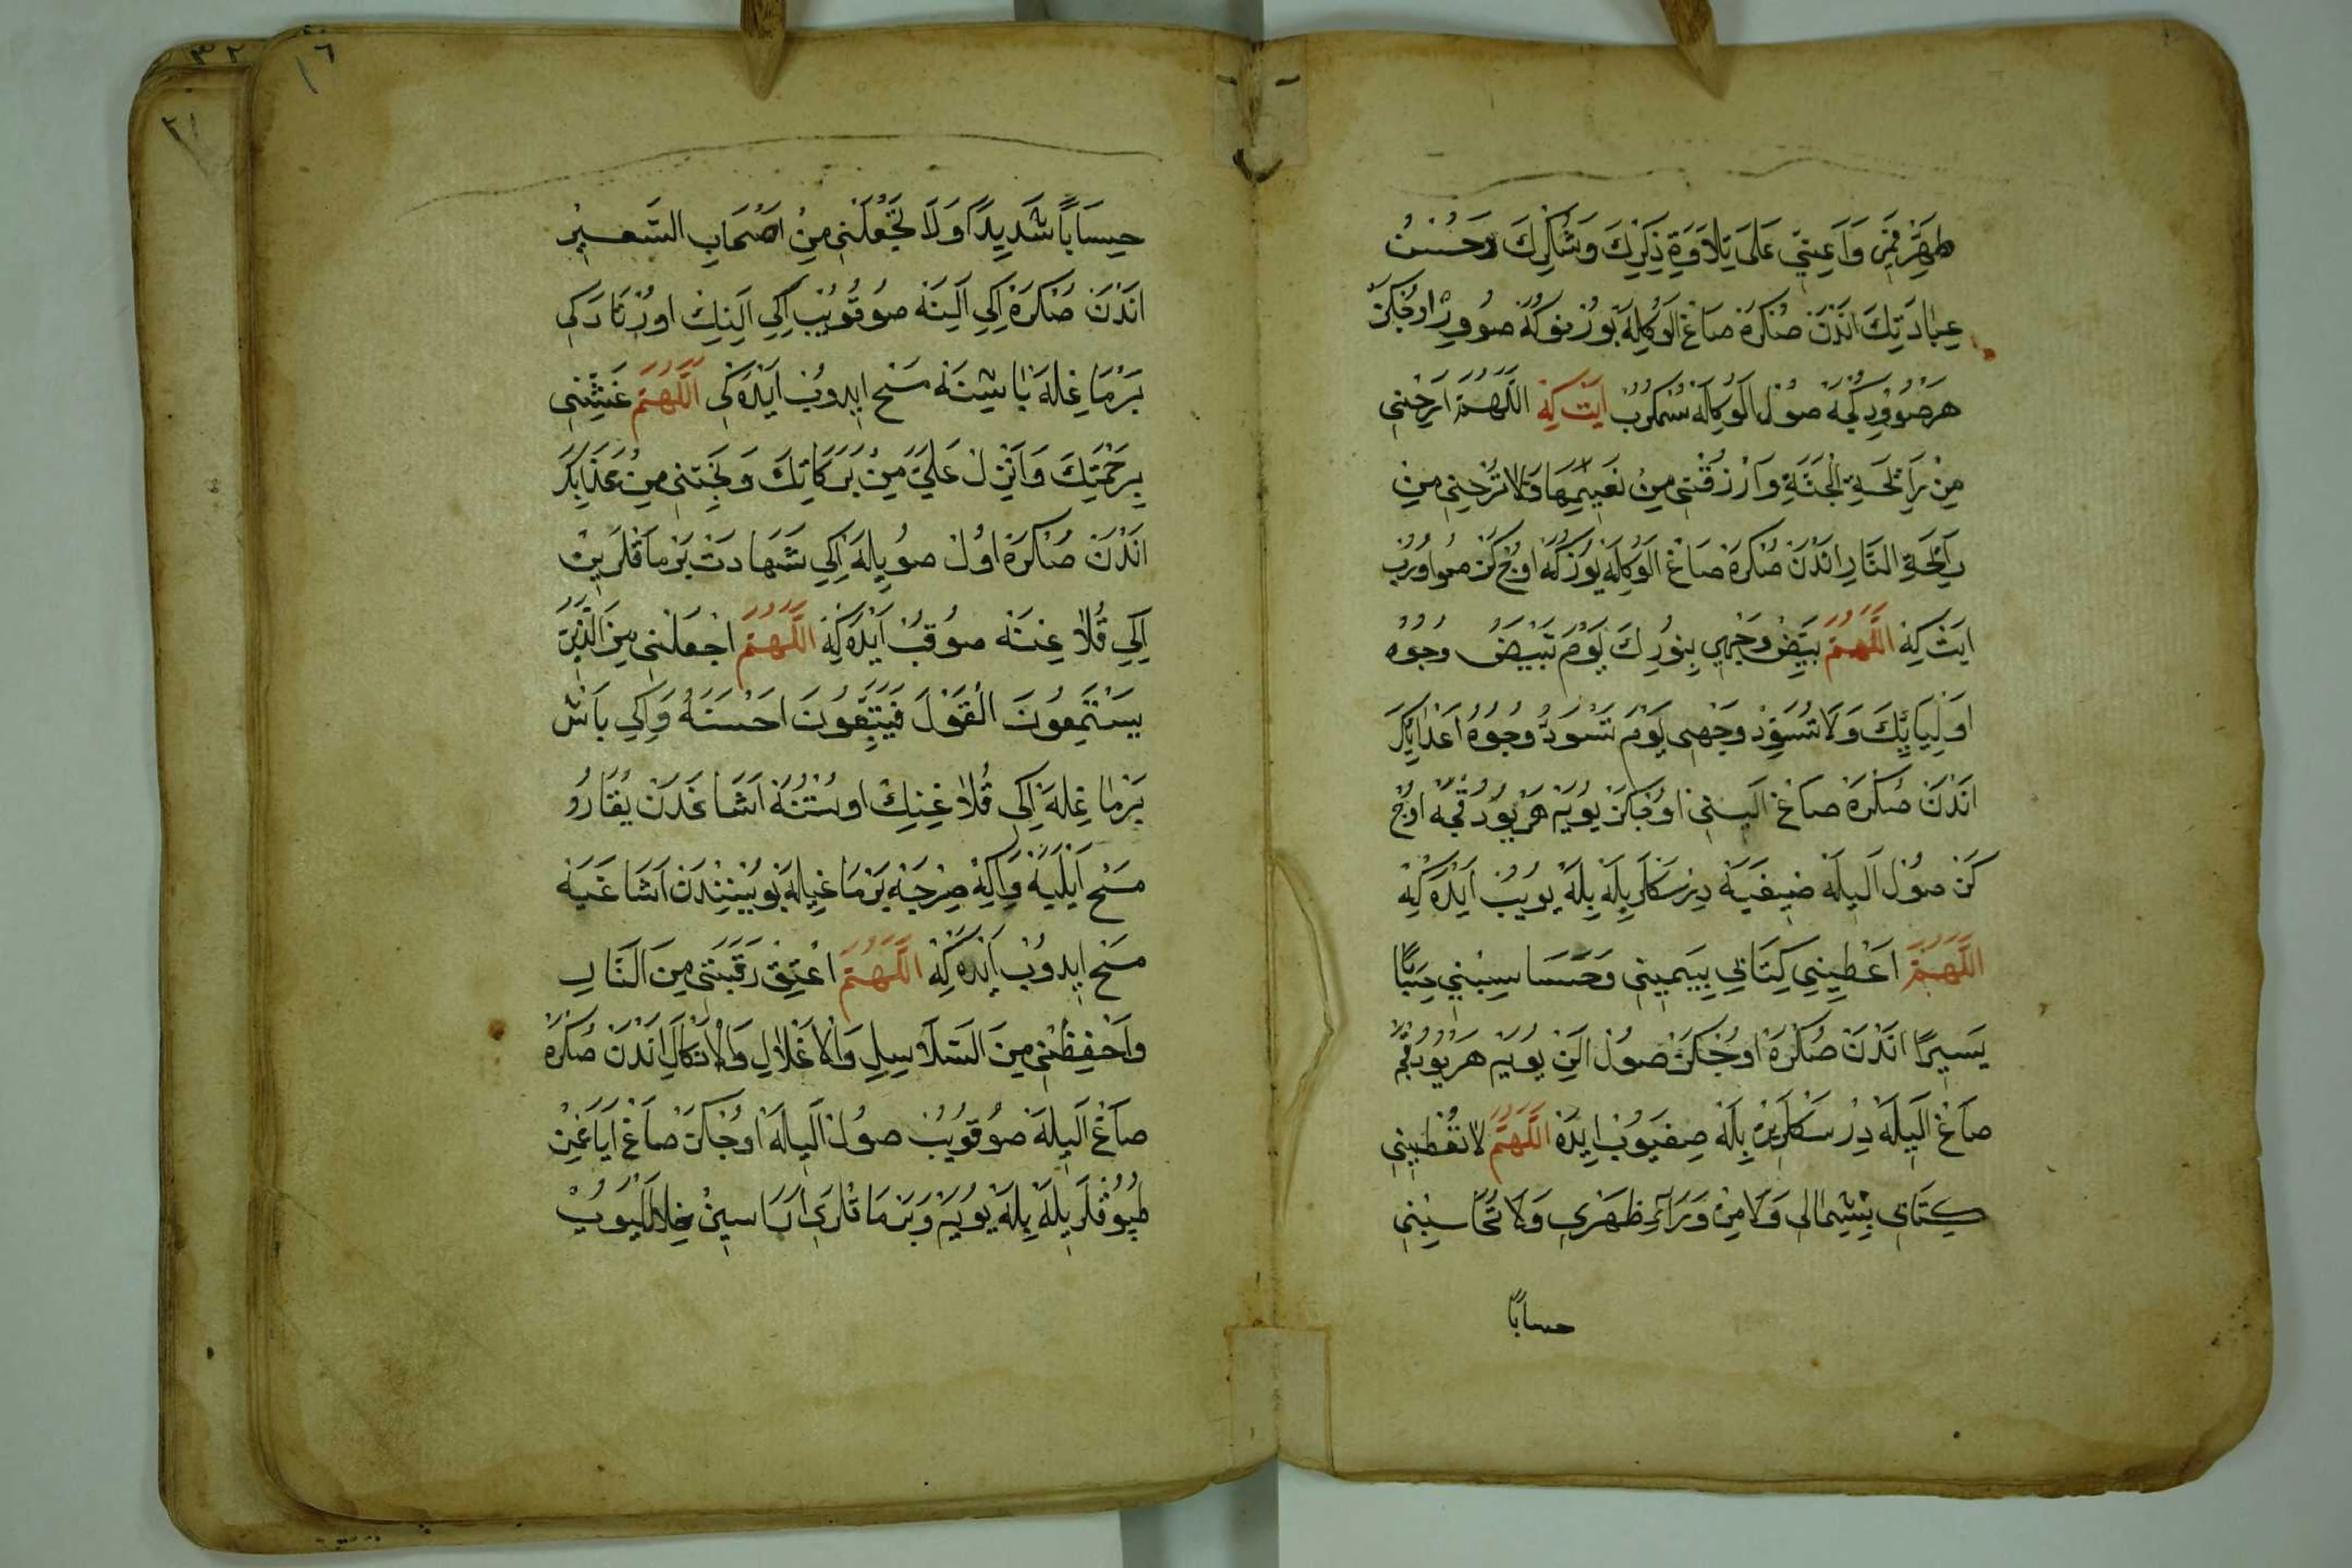 طَهِّرْ فَمِّي وَاَعِنِّي عَلَى تِلَاوَةِ ذِكْرِكَ وَشُكْرِكَ وَحُسْنُ
عِبَادَتِكَ اَنْدَنْ صُنْكَرَهْ صَاغْ اَلُوكِلَهْ بُورْنُوكَهْ صُووِرْ اُوجْكَرَّ
هَرْصُوُودِكُجَهْ صُولْ اَلُوكِلَهْ سُمْكُرُوبْ اَيْتْ كِهْ اَللَّهُمَّ اَرِحْنِي
مِنْ رَايِحَةِ الْجَنَّةِ وَارْزُقْنِي مِنْ نَعِيمِهَا وَلَا تُرِحْنِي مِنْ
رَايِحَةِ النَّارِ اَنْدَنْ صُنْكَرَهْ صَاغْ اَلُوكِلَهْ يُوزُكَهْ اُوجْ كَزْ صُو اُورُبْ
اَيْتْ كِهْ اَللَّهُمَّ بَيِّضْ وَجْهِي بِنُورِكَ يَوْمَ تَبْيَضُّ وُجُوهُ
اَوْلِيَايِكَ وَلَا تُسَوِّدْ وَجْهِي يَوْمَ تَسْوَدُّ وُجُوهُ اَعْدَايِكَ
اَنْدَنْ صُنْكَرَهْ صَاغْ اَلِينِي اُوجْكَزْ يُويَهْ هَرْ يُودُقْجَهْ اُوجْ
كَزْ صُولْ اَلِيلَهْ صِيغَيَهْ دِرْسَكْلَرِيلَهْ بِلَهْ يُويُبْ اَيْدَهْ كِهْ
اَللَّهُمَّ اَعْطِينِي كِتَابِي بِيَمِينِي وَحَسَاسِبْنِي حِسَابًا
يَسِيرًا اَنْدَنْ صُنْكَرَهْ اُوجْكَزْ صُولْ اَلِنْ يُويَهْ هَرْ يُودُقْجَهْ
صَاغْ اَلِيلَهْ دِرْسَكْلَرِيلَهْ بِلَهْ صِغَيُوبْ اَيْدَهْ اَللَّهُمَّ لَا تُعْطِينِي
كِتَابِي بِشِمَالِي وَلَا مِنْ وَرَاءِ ظَهْرِي وَلَا تُحَاسِبْنِي
حسابًا
١٦
حِسَابًا شَدِيدًا وَلَا تَجْعَلْنِي مِنْ اَصْحَابِ السَّعِيرْ
اَنْدَنْ صُنْكَرَهْ اِكِي اَلِينَهْ صُوقُويُبْ اِكِي اَلِينِكْ اُورْتَادَكِي
بَرْمَاغِلَهْ بَاشِنَهْ مَسْحْ اِيدُوبْ اَيْدَهْ كِي اَللَّهُمَّ غَشِّنِي
بِرَحْمَتِكَ وَاَنْزِلْ عَلَيَّ مِنْ بَرَكَاتِكَ وَنَجِّنِي مِنْ عَذَابِكَ
اَنْدَنْ صُنْكَرَهْ اُولْ صُويِلَهْ اِكِي شَهَادَتْ بَرْمَاقْلَرِينْ
اِكِي قُلَاغِنَهْ صُوقُبْ اَيْدَهْ كِهْ اَللَّهُمَّ اجْعَلْنِي مِنَ الَّذِينَ
يَسْتَمِعُونَ الْقَوْلَ فَيَتَّبِعُونَ اَحْسَنَهُ وَاِكِي بَاشْ
بَرْمَاغِلَهْ اِكِي قُلَاغِنِكْ اُوسْتُنَهْ اَشَاغَدَنْ يُقَارُو
مَسْحْ اَيْلَيَهْ وَاَلِكْ صِرْچَهْ بَرْمَاغِيلَهْ بُويْنِنْدَنْ اَشَاغَيَهْ
مَسْحْ اِيدُوبْ اَيْدَهْ كِهْ اَللَّهُمَّ اعْتِقْ رَقَبَتِي مِنَ النَّارِ
وَاحْفِظْنِي مِنَ السَّلَاسِلِ وَالْاَغْلَالِ وَالْاَنْكَالِ اَنْدَنْ صُنْكَرَهْ
صَاغْ اَلِيلَهْ صُوقُويُبْ صُولْ اَلِيلَهْ اُوجْكَزْ صَاغْ اَيَاغِنْ
طُپُوقْلَرِيلَهْ بِلَهْ يُويَهْ وَبَرْمَاقْلَرِي اَرَاسِينْ خِلَالْلَيُوبْ
٣٢
٢١